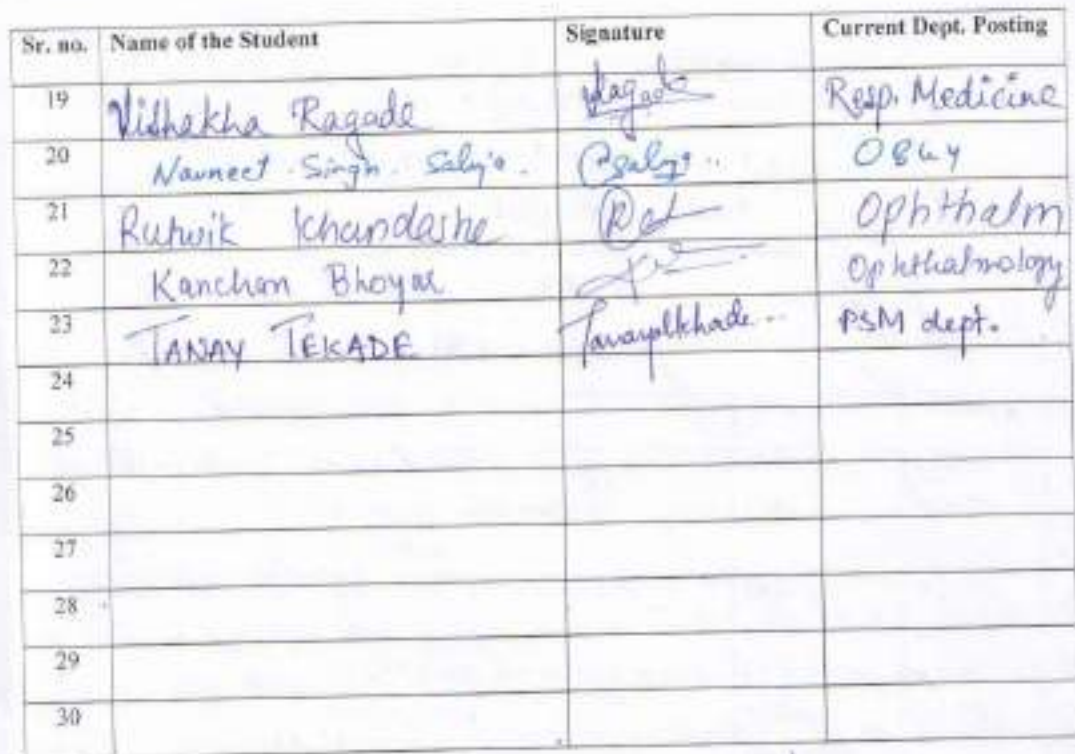 Sr. no. Name of the Student Signature Current Dept. Posting
19 Vishakha Ragade Ragade Resp. Medicine
20 Navneet Singh OBGY
21 Rutwik Khandashe Ophthalm
22 Kanchan Bhoyar Ophthalmology
23 TANAY TEKADE PSM dept.
24
25
26
27
28
29
30